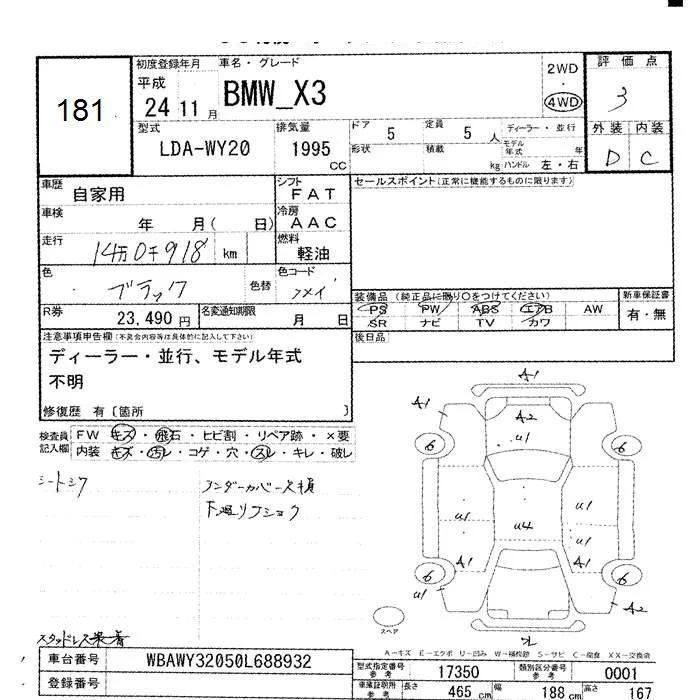 181
初度登録年月 車名・グレード
平成 24 11 月 BMW_X3
2WD
・
4WD
評価点
3
外装 内装
D C
型式 排気量
LDA-WY20 1995 CC
ドア 5 定員 5 人 ディーラー・並行
形状 積載 kg モデル年式 年
ハンドル 左・右
車歴 自家用
シフト FAT
車検 年 月( 日)
冷房 AAC
走行 14万0千918 km
燃料 軽油
色 ブラック 色替
色コード フメイ
R券 23,490 円 名変通知期限 月 日
セールスポイント(正常に機能するものに限ります)
装備品 (純正品に限り○をつけてください) 新車保証書
PS PW ABS エアB AW 有・無
SR ナビ TV カワ
後日品
注意事項申告欄(不具合内容等は具体的に記入して下さい)
ディーラー・並行、モデル年式
不明
修復歴 有〔箇所 〕
検査員 記入欄
FW キズ・飛石・ヒビ割・リペア跡・×要
内装 キズ・汚レ・コゲ・穴・スレ・キレ・破レ
シートシワ
アンダーカバー欠損
下廻リフショク
スタッドレス装着
A1
A1 A2
U1
6 6
U1 U1
U4 U1
A1 A1
6 6
U1 A2
スペア
A-キズ E-エクボ U-凹み W-補修跡 S-サビ C-腐食 XX-交換済
車台番号 WBAWY32050L688932
登録番号
型式指定番号 参考 17350 類別区分番号 参考 0001
車庫証明用 参考 長さ 465 cm 幅 188 cm 高さ 167